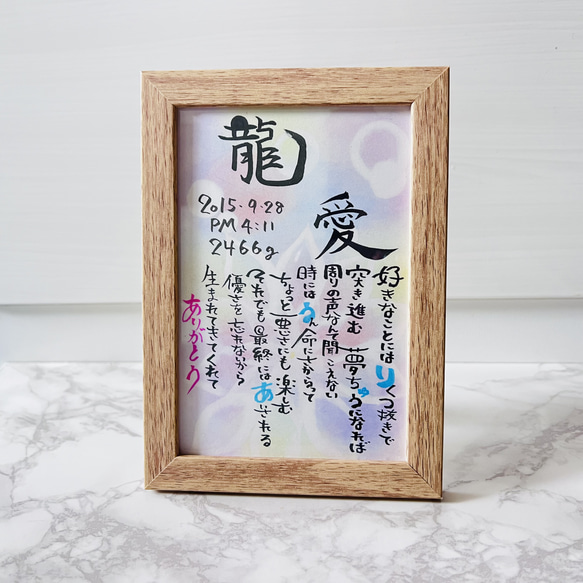 龍
愛
2015.9.28
PM 4:11
2466g
好きなことにはりくつ抜きで
突き進む 夢ちゅうになれば
周りの声なんて聞こえない
時にはうん命に十からって
ちょっと悪さにも楽しむ
それでも最終にはあされる
優さを忘れないから
生まれてきてくれて
ありがとう